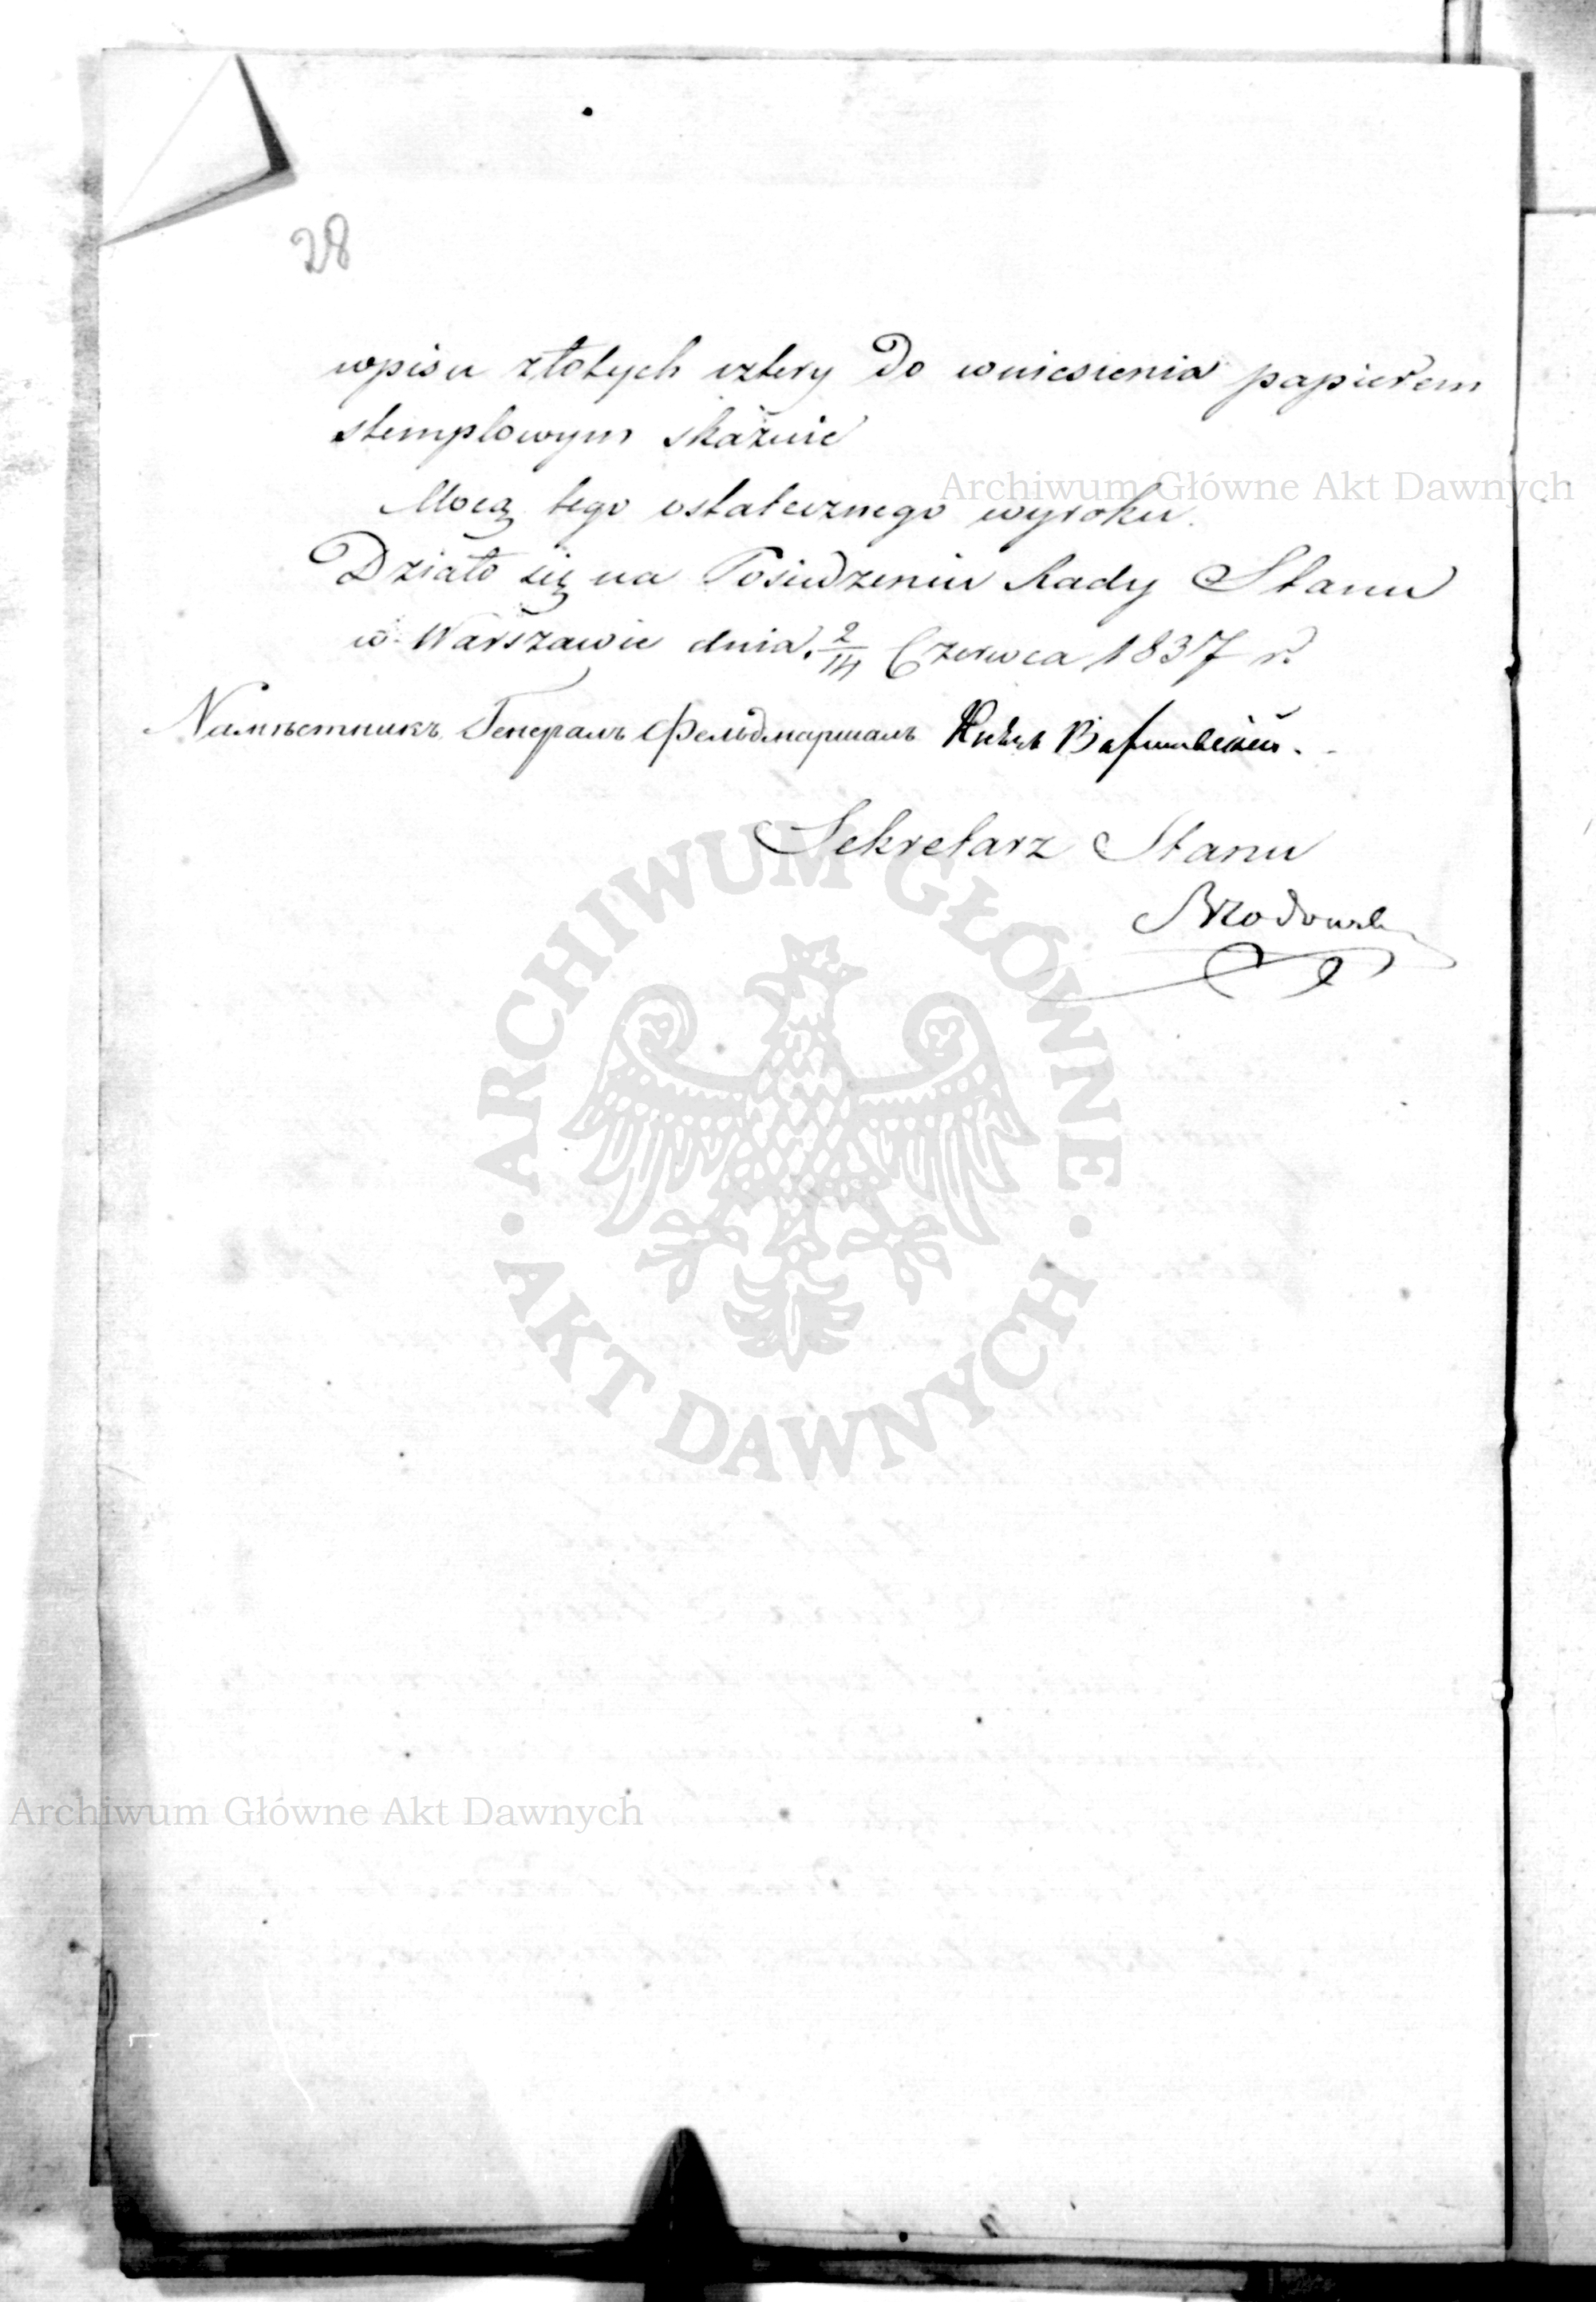 28
wpisu złotych cztery do wniesienia papierem
stemplowym skazuie
Mocą tego ostatecznego wyroku.
Działo się na Posiedzeniu Rady Stanu
w Warszawie dnia 2/14 Czerwca 1837 r.
Намѣстникъ Генералъ Фельдмаршалъ Князь Варшавскій
Sekretarz Stanu
Archiwum Główne Akt Dawnych
ARCHIWUM GŁÓWNE AKT DAWNYCH
Archiwum Główne Akt Dawnych